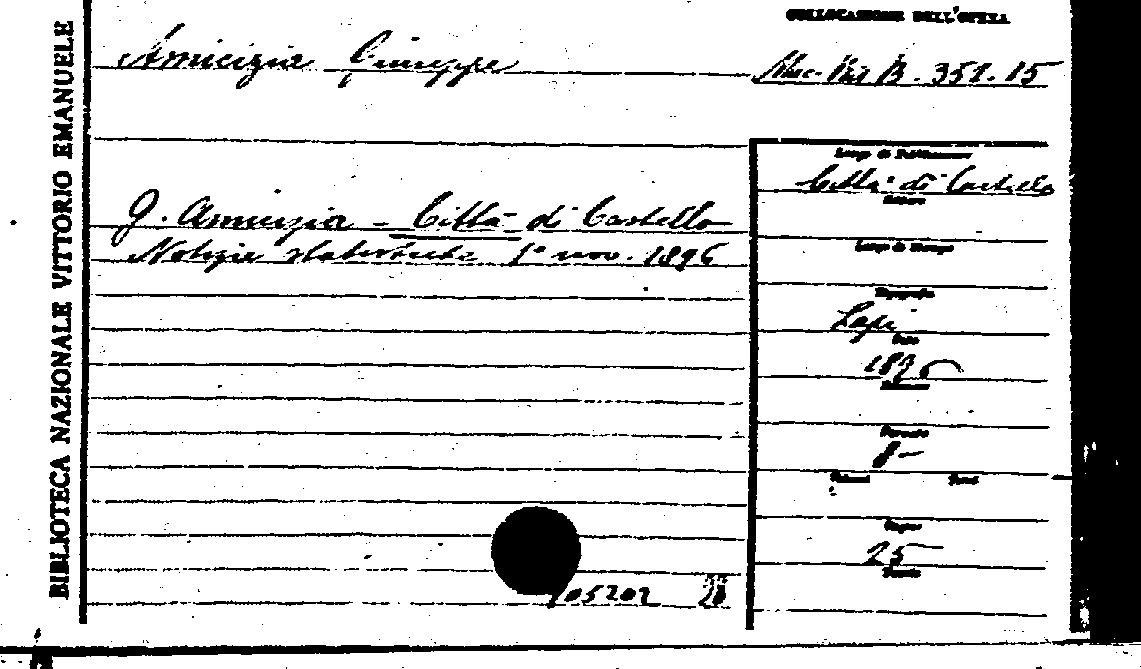 BIBLIOTECA NAZIONALE VITTORIO EMANUELE
COLLOCAZIONE DELL'OPERA
Amicizia Giuseppe
Misc. Ris B. 351. 15
G. Amicizia - Città di Castello
Notizie statistiche 1° nov. 1896
Luogo di Pubblicazione
Città di Castello
Editore
Luogo di Stampa
Tipografia
Lapi
Data
1896
Formato
8-
Volumi
Pagine
25
105202